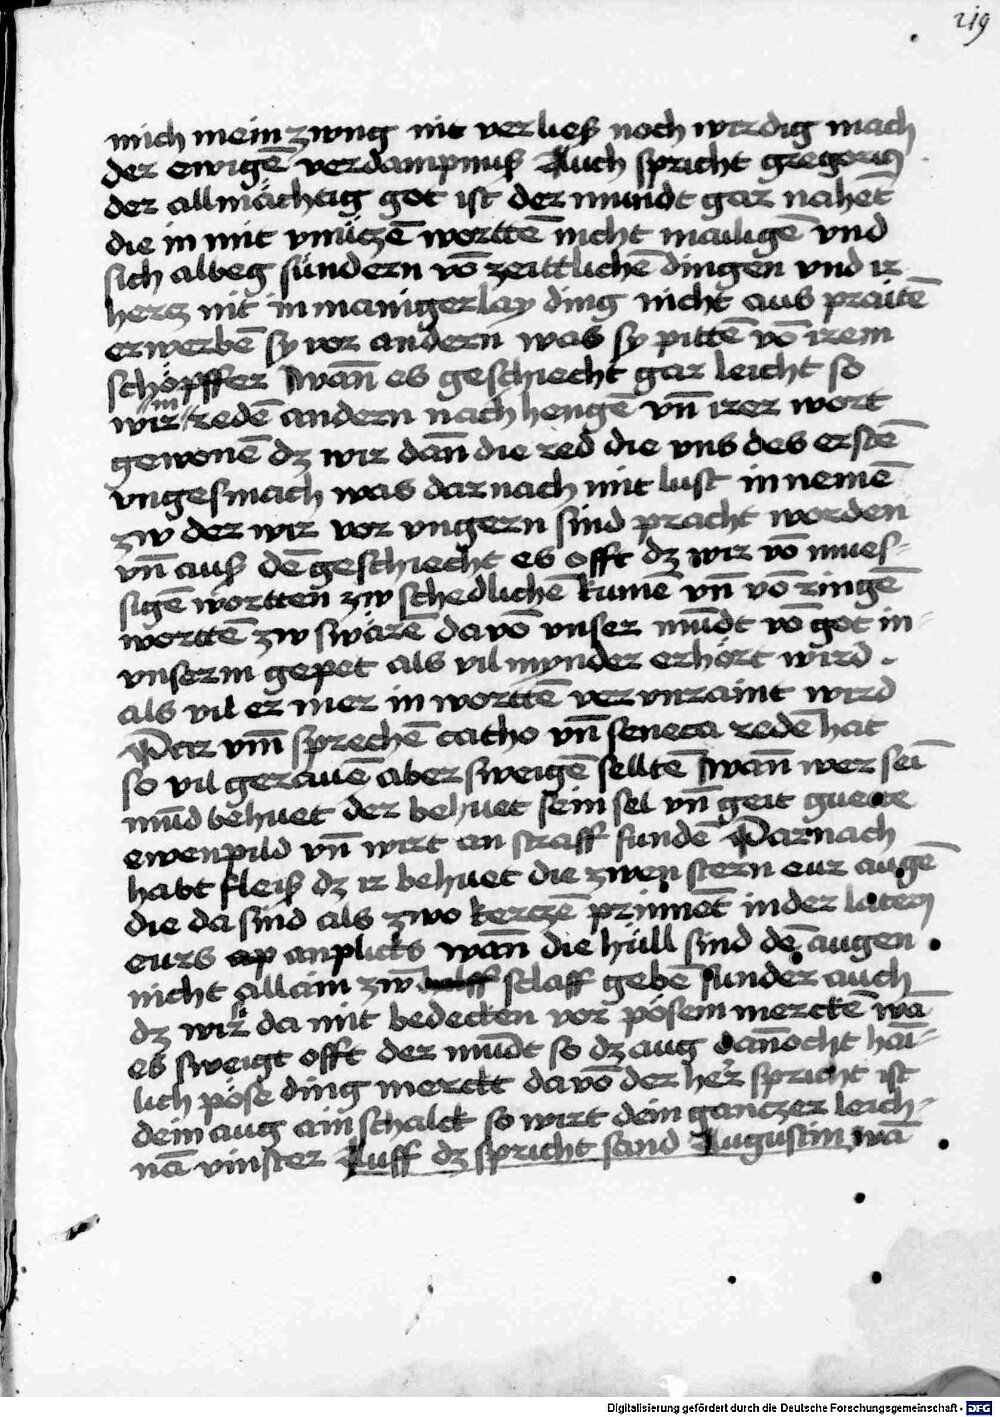 219
mich mein zwng nit verließ noch wirdig mach
der ewigē verdampnuß Auch spricht gregorius
der allmächtig got ist der mundt gar nahet
die in mit vnüczē worttē nicht mailigē vnd
sich albeg sündern vō zeittlichē dingen vnd ir
hercz nit in manigerlay ding nicht aus praitē
erwerbē sy vor andern was sy pittē vō irem
schöpffer Wan̄ es geschiecht gar leicht so
wir in redē andern nach hengē vn̄ irer wort
gewonē dz wir dan̄ die red die vns des erstē
vngesmach was darnach mit lust in nemē
zw der wir vor vngern sind pracht worden
vn̄ auß dē geschiecht es offt dz wir vō mues-
sigē wortten zw schedlichē kumē vn̄ vō ringē
worttē zw swärē davō vnser mūdt vō got in-
vnserm gepet als vil mynder erhört wird .
als vil er mer in worttē vervnraint wird
Dar vm̄ sprechē catho vn̄ seneca redē hat
so vil gerauē aber sweigē selltē Wan̄ wer sei
mūd behuet der behuet sein sel vn̄ geit guete
ewenpild vn̄ wirt an straff fundē Darnach
habt fleiß dz ir behuet die zwen stern eur augē
die da sind als zwo kerczē prinnēt in der latern
eurs anplicks wan̄ die hüll sind dē augen
nicht allain zw̄ sclaff gebē sunder auch
dz wir da mit bedecken vor pösem merckē wā
es sweigt offt der mūdt so dz aug dan̄ocht hai-
lich pöse ding merckt davō der her spricht ist
dein aug ain schalck so wirt dein ganczer leich-
nā vinster Auff dz spricht sand Augustin wā
Digitalisierung gefördert durch die Deutsche Forschungsgemeinschaft - DFG